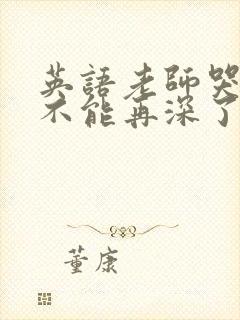 英語老師哭
不能再深了
董康